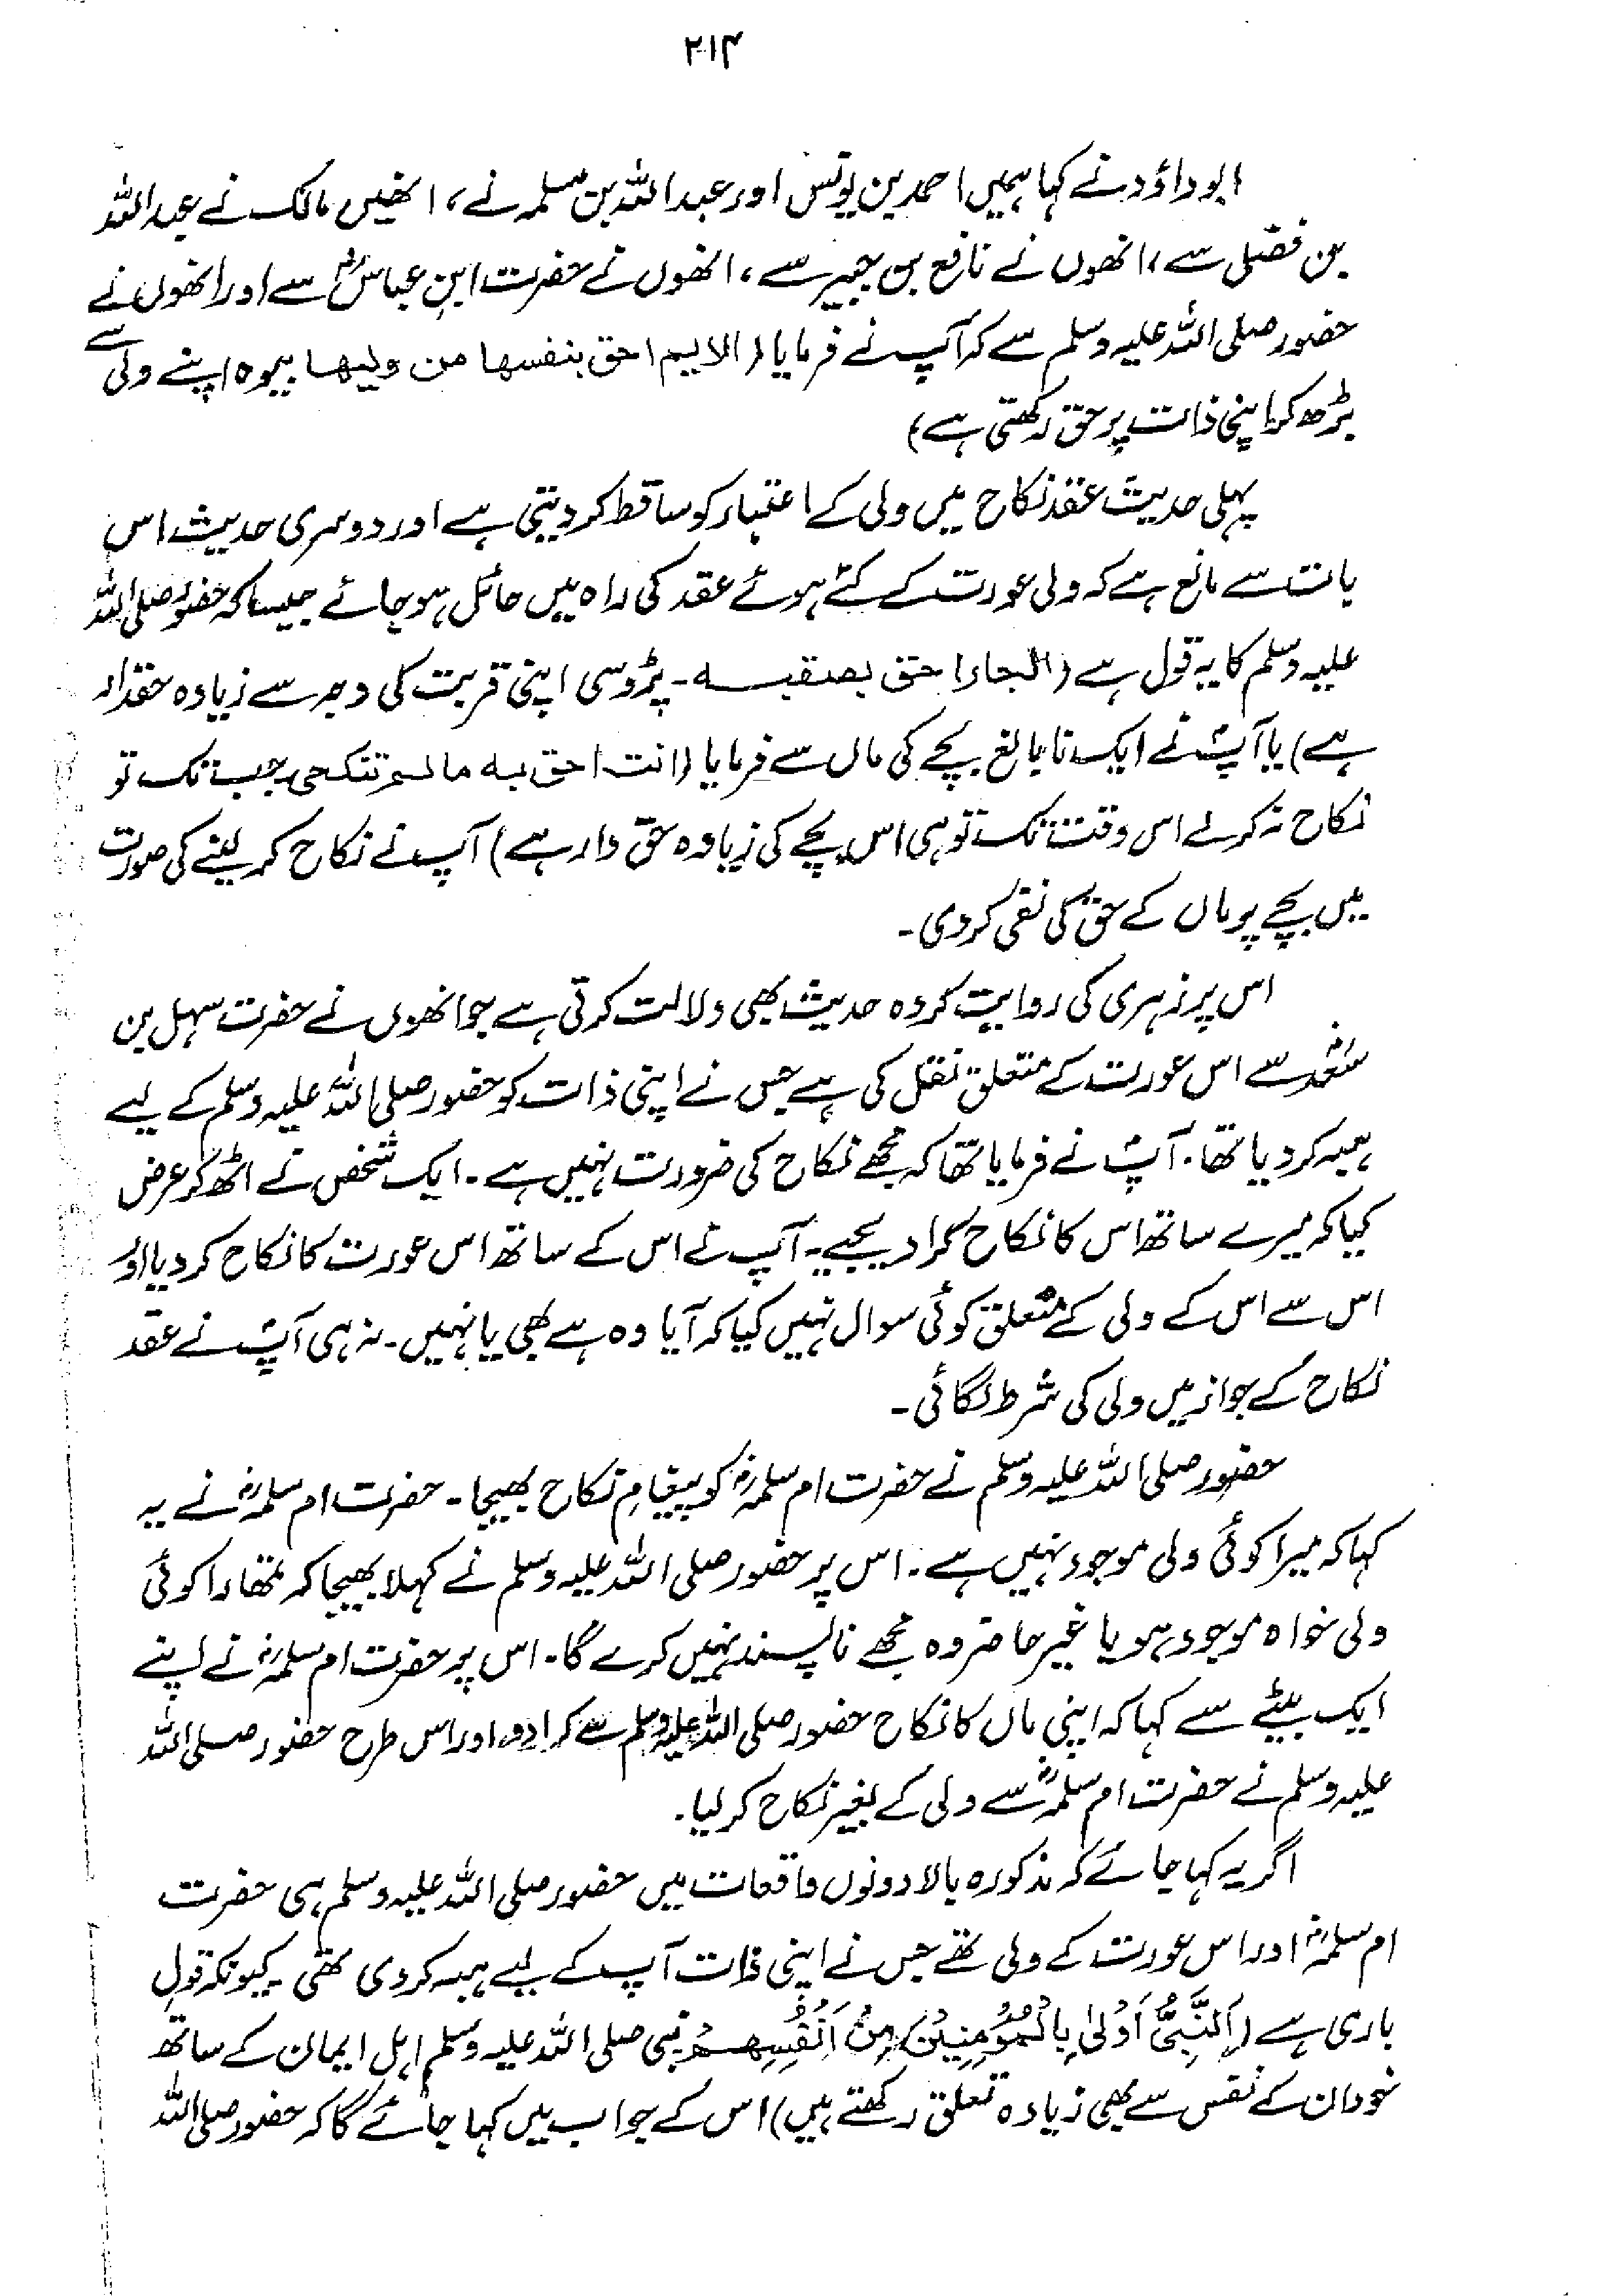 ۲۱۴
ابوداؤد نے کہا ہمیں احمد بن یونس اور عبداللہ بن مسلمہ نے، انھیں مالک نے عبداللہ
بن فضل سے، انھوں نے نافع بن جبیر سے، انھوں نے حضرت ابن عباسؓ سے اور انھوں نے
حضور صلی اللہ علیہ وسلم سے کہ آپ نے فرمایا (الایم احق بنفسھا من ولیھا بیوہ اپنے ولی سے
بڑھ کر اپنی ذات پر حق رکھتی ہے)
پہلی حدیث عقد نکاح میں ولی کے اعتبار کو ساقط کر دیتی ہے اور دوسری حدیث اس
بات سے مانع ہے کہ ولی عورت کے کئے ہوئے عقد کی راہ میں حائل ہو جائے جیسا کہ حضور صلی اللہ
علیہ وسلم کا یہ قول ہے (الجار احق بصقبہ۔ پڑوسی اپنی قربت کی وجہ سے زیادہ حقدار
ہے) یا آپؐ نے ایک نابالغ بچے کی ماں سے فرمایا (انت احق بہ مالم تنکحی، جب تک تو
نکاح نہ کرلے اس وقت تک تو ہی اس بچے کی زیادہ حق دار ہے) آپ نے نکاح کر لینے کی صورت
میں بچے پر ماں کے حق کی نفی کر دی۔
اس پر زہری کی روایت کردہ حدیث بھی دلالت کرتی ہے جو انھوں نے حضرت سہل بن
سعدؓ سے اس عورت کے متعلق نقل کی ہے جس نے اپنی ذات کو حضور صلی اللہ علیہ وسلم کے لیے
ہبہ کر دیا تھا۔ آپؐ نے فرمایا تھا کہ مجھے نکاح کی ضرورت نہیں ہے۔ ایک شخص نے اٹھ کر عرض
کیا کہ میرے ساتھ اس کا نکاح کرا دیجیے۔ آپ نے اس کے ساتھ اس عورت کا نکاح کر دیا اور
اس سے اس کے ولی کے متعلق کوئی سوال نہیں کیا کہ آیا وہ ہے بھی یا نہیں۔ نہ ہی آپؐ نے عقد
نکاح کے جواز میں ولی کی شرط لگائی۔
حضور صلی اللہ علیہ وسلم نے حضرت ام سلمہؓ کو پیغامِ نکاح بھیجا۔ حضرت ام سلمہؓ نے یہ
کہا کہ میرا کوئی ولی موجود نہیں ہے۔ اس پر حضور صلی اللہ علیہ وسلم نے کہلا بھیجا کہ تمھارا کوئی
ولی خواہ موجود ہو یا غیر حاضر وہ مجھے ناپسند نہیں کرے گا۔ اس پر حضرت ام سلمہؓ نے اپنے
ایک بیٹے سے کہا کہ اپنی ماں کا نکاح حضور صلی اللہ علیہ وسلم سے کرا دو، اور اس طرح حضور صلی اللہ
علیہ وسلم نے حضرت ام سلمہؓ سے ولی کے بغیر نکاح کر لیا۔
اگر یہ کہا جائے کہ مذکورہ بالا دونوں واقعات میں حضور صلی اللہ علیہ وسلم ہی حضرت
ام سلمہؓ اور اس عورت کے ولی تھے جس نے اپنی ذات آپ کے لیے ہبہ کر دی تھی۔ کیونکہ قولِ
باری ہے (اَلنَّبِیُّ اَوْلٰی بِالْمُؤْمِنِیْنَ مِنْ اَنْفُسِھِمْ نبی صلی اللہ علیہ وسلم اہل ایمان کے ساتھ
خود ان کے نفس سے بھی زیادہ تعلق رکھتے ہیں) اس کے جواب میں کہا جائے گا کہ حضور صلی اللہ